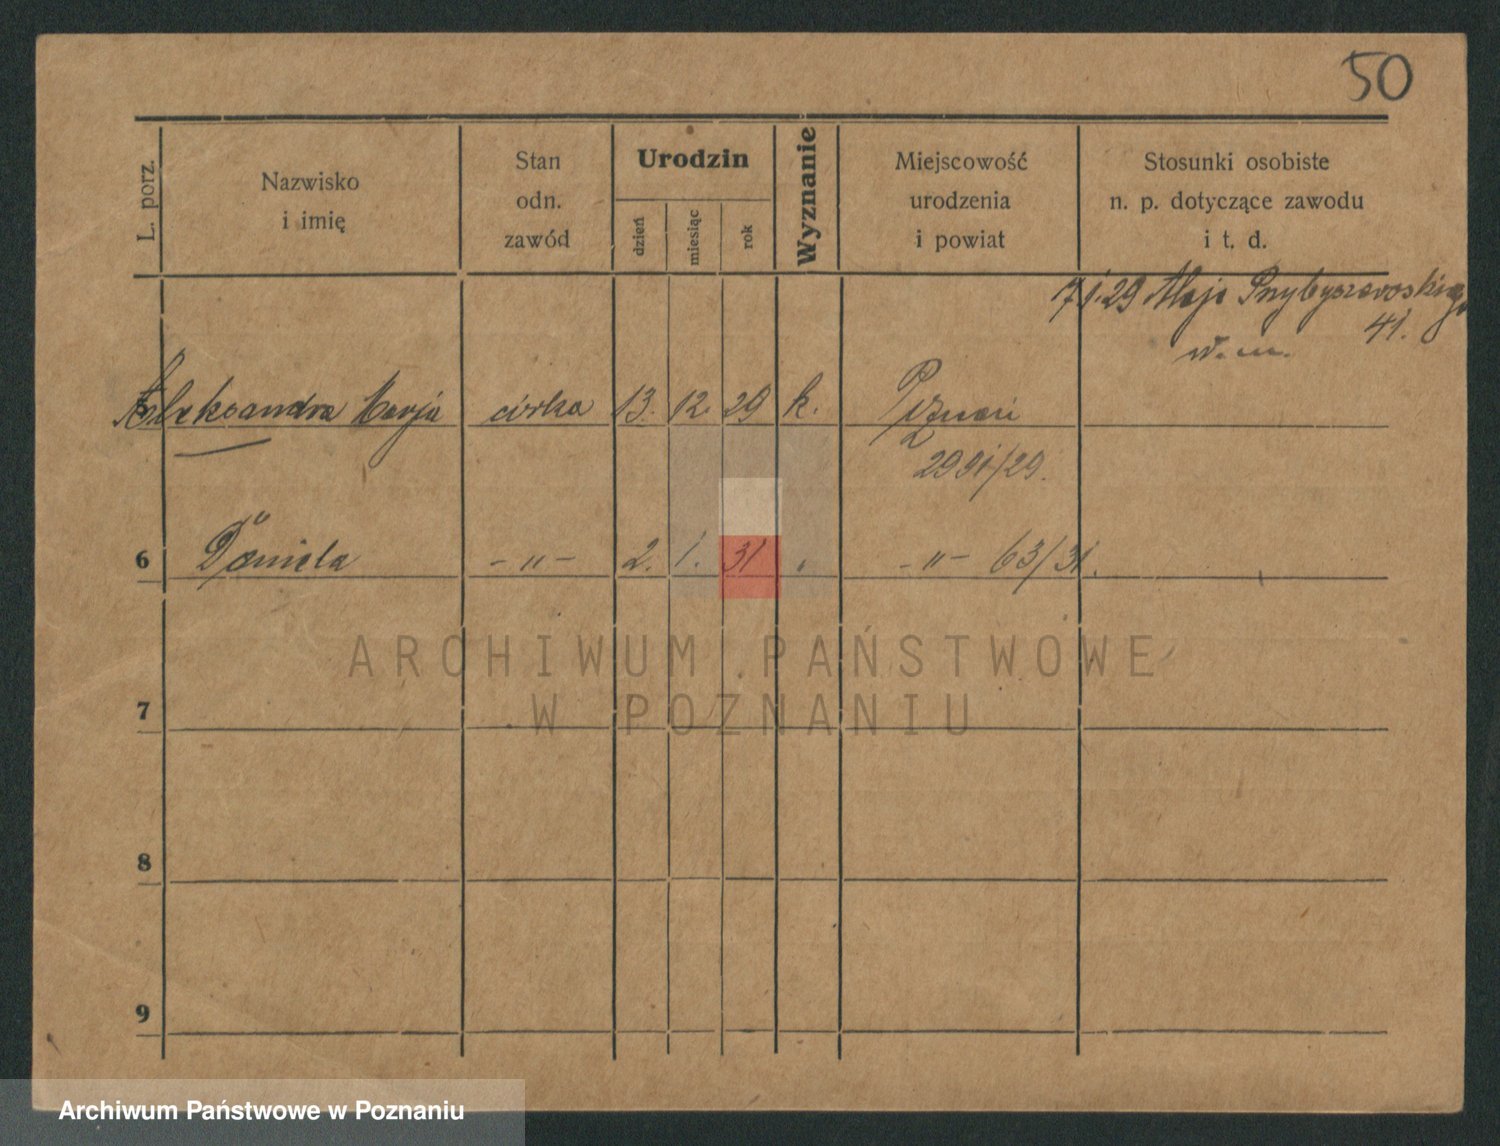 50
L. porz.
Nazwisko
i imię
Stan
odn.
zawód
Urodzin
dzień
miesiąc
rok
Wyznanie
Miejscowość
urodzenia
i powiat
Stosunki osobiste
n. p. dotyczące zawodu
i t. d.
7.1.29 Aleje Przybyszewskiego
41.
w. m.
5 Aleksandra Marja córka 13. 12. 29 k. Poznań
2991/29.
6 Daniela - " - 2. 1. 31 " - " - 63/31.
ARCHIWUM PAŃSTWOWE
W POZNANIU
7
8
9
Archiwum Państwowe w Poznaniu